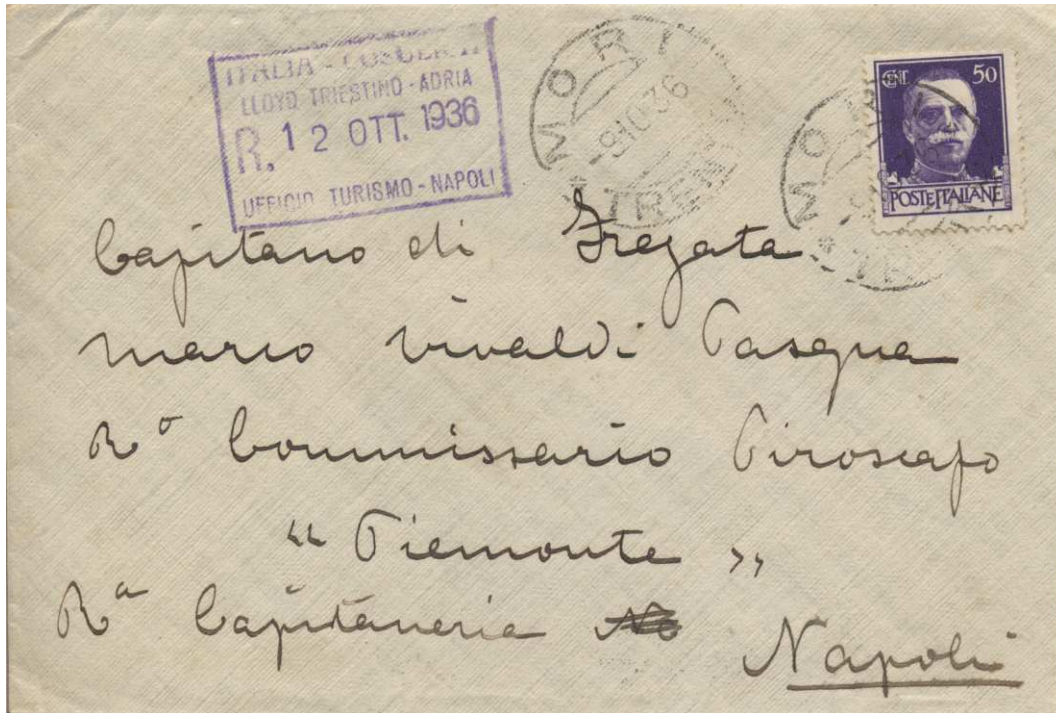 ITALIA - COSULICH
LLOYD TRIESTINO - ADRIA
R. 12 OTT. 1936
UFFICIO TURISMO - NAPOLI
MORI
-9.10.36
* TREN
CENT 50
POSTE ITALIANE
MORI
Capitano di Fregata
Mario Vivaldi Pasqua
Rº Commissario Piroscafo
"Piemonte"
Rª Capitaneria
Napoli